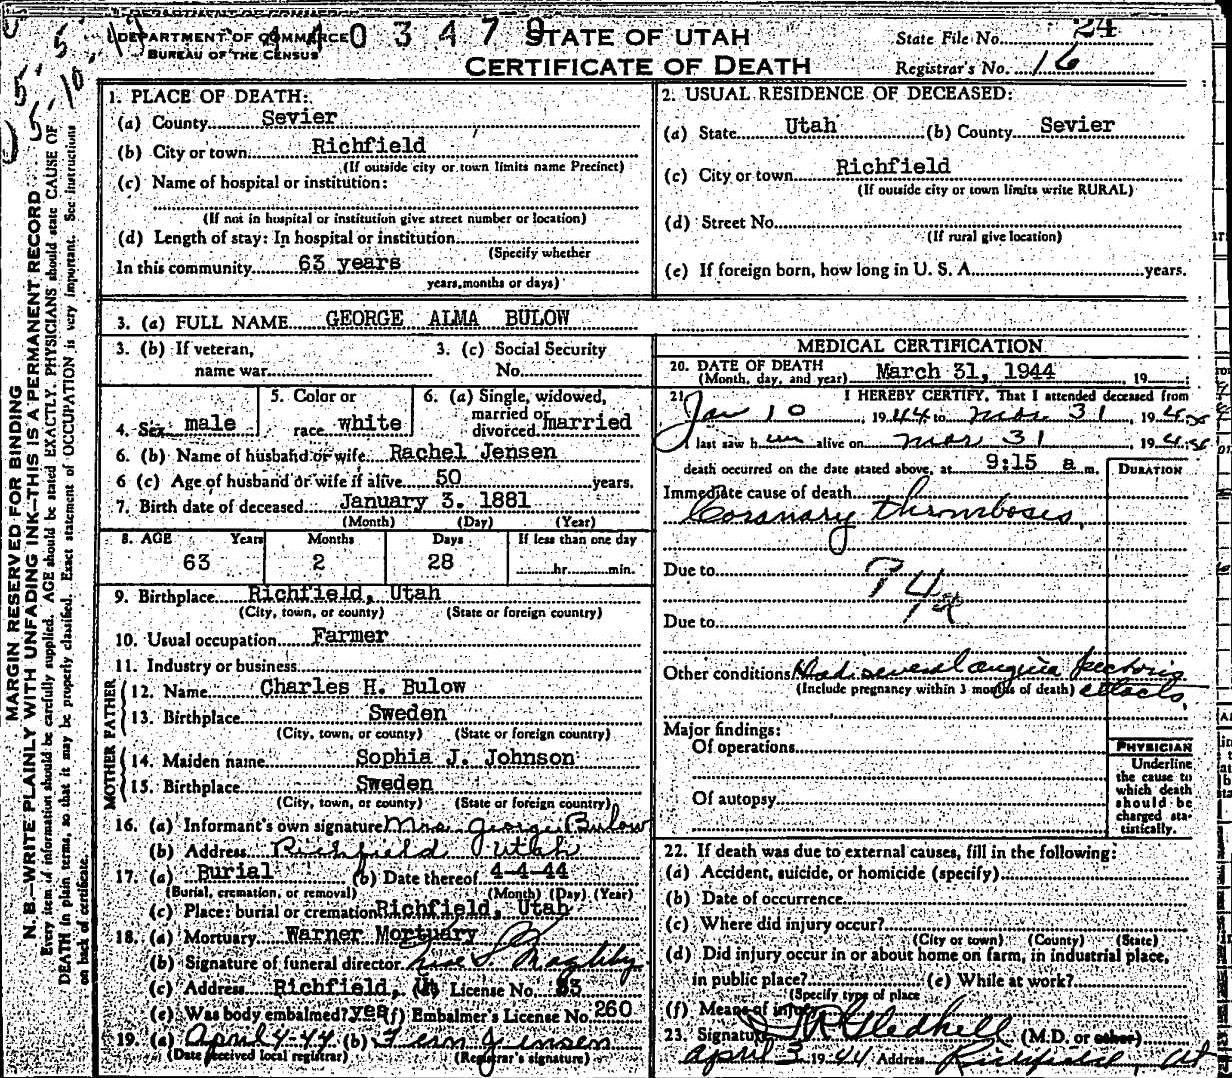 DEPARTMENT OF COMMERCE
BUREAU OF THE CENSUS
STATE OF UTAH
CERTIFICATE OF DEATH
State File No. 24
Registrar's No. 16
MARGIN RESERVED FOR BINDING
N. B.—WRITE PLAINLY WITH UNFADING INK—THIS IS A PERMANENT RECORD
Every item of information should be carefully supplied. AGE should be stated EXACTLY. PHYSICIANS should state CAUSE OF
DEATH in plain terms, so that it may be properly classified. Exact statement of OCCUPATION is very important. See instructions
on back of certificate.
1. PLACE OF DEATH:
(a) County Sevier
(b) City or town Richfield
(If outside city or town limits name Precinct)
(c) Name of hospital or institution:
(If not in hospital or institution give street number or location)
(d) Length of stay: In hospital or institution
(Specify whether
In this community 63 years
years, months or days)
2. USUAL RESIDENCE OF DECEASED:
(a) State Utah (b) County Sevier
(c) City or town Richfield
(If outside city or town limits write RURAL)
(d) Street No.
(If rural give location)
(e) If foreign born, how long in U. S. A. years.
3. (a) FULL NAME GEORGE ALMA BULOW
3. (b) If veteran, name war
3. (c) Social Security No.
4. Sex male
5. Color or race white
6. (a) Single, widowed, married or divorced married
6. (b) Name of husband or wife Rachel Jensen
6 (c) Age of husband or wife if alive 50 years.
7. Birth date of deceased January 3, 1881
(Month) (Day) (Year)
8. AGE Years Months Days If less than one day
63 2 28 hr. min.
9. Birthplace Richfield, Utah
(City, town, or county) (State or foreign country)
10. Usual occupation Farmer
11. Industry or business
FATHER
12. Name Charles H. Bulow
13. Birthplace Sweden
(City, town, or county) (State or foreign country)
MOTHER
14. Maiden name Sophia J. Johnson
15. Birthplace Sweden
(City, town, or county) (State or foreign country)
16. (a) Informant's own signature Mrs. George Bulow
(b) Address Richfield Utah
17. (a) Burial (b) Date thereof 4-4-44
(Burial, cremation, or removal) (Month) (Day) (Year)
(c) Place: burial or cremation Richfield, Utah
18. (a) Mortuary Warner Mortuary
(b) Signature of funeral director
(c) Address Richfield, U (d) License No. 83
(e) Was body embalmed? yes (f) Embalmer's License No. 260
19. (a) April 4-44 (b) Fern Jensen
(Date received local registrar) (Registrar's signature)
MEDICAL CERTIFICATION
20. DATE OF DEATH
(Month, day, and year) March 31, 1944, 19
21. I HEREBY CERTIFY, That I attended deceased from
Jan 10, 1944 to Mar 31, 1944
last saw him alive on Mar 31, 1944
death occurred on the date stated above, at 9:15 a m.
DURATION
Immediate cause of death
Coronary thrombosis.
Due to
Due to
Other conditions Had several angina pectoris
(Include pregnancy within 3 months of death) attacks.
Major findings:
Of operations
Of autopsy
PHYSICIAN
Underline
the cause to
which death
should be
charged sta-
tistically.
22. If death was due to external causes, fill in the following:
(a) Accident, suicide, or homicide (specify)
(b) Date of occurrence
(c) Where did injury occur?
(City or town) (County) (State)
(d) Did injury occur in or about home on farm, in industrial place,
in public place? (e) While at work?
(Specify type of place
(f) Means of injury
23. Signature Gledhill (M.D. or other)
April 3 1944 Address Richfield, Ut